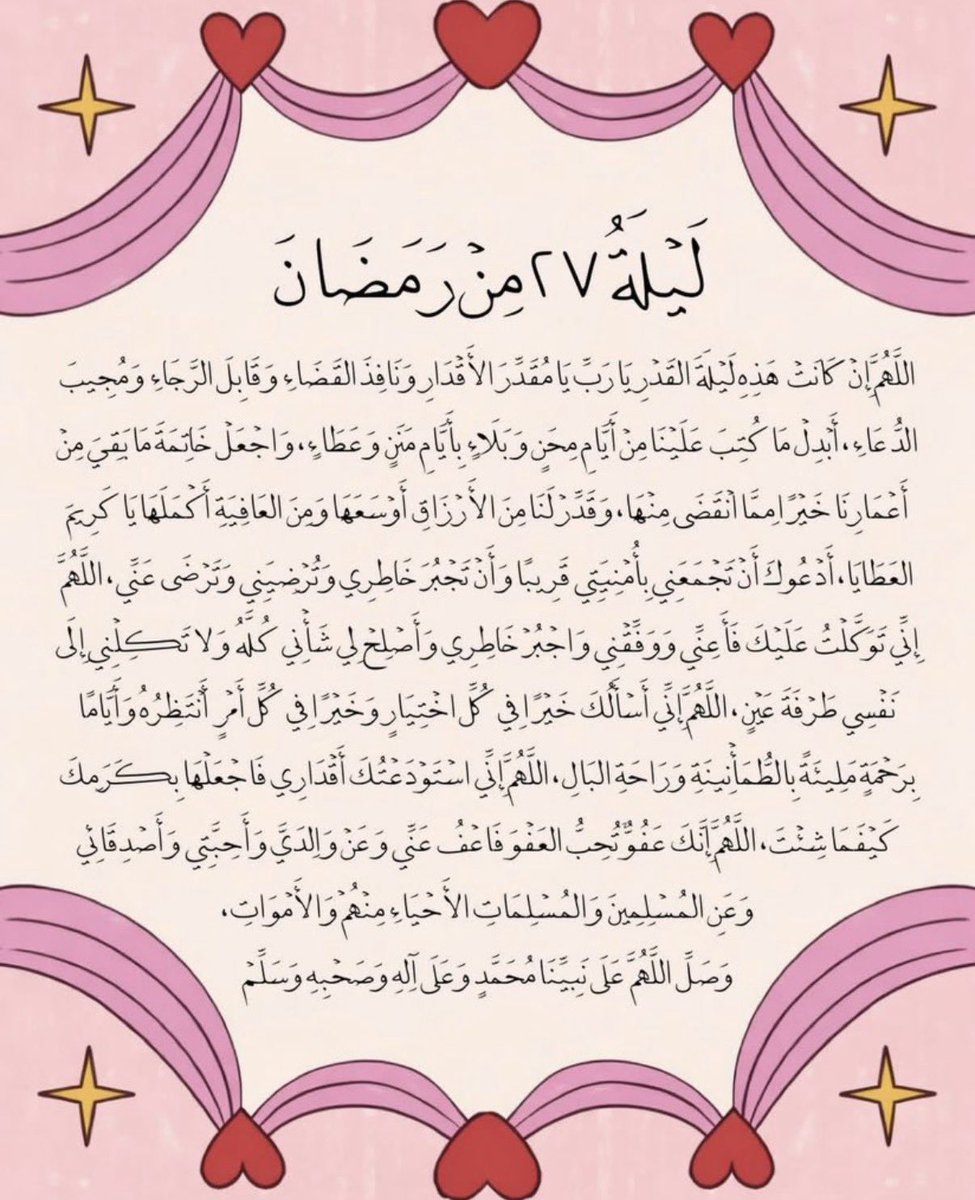 لَيْلَةُ ٢٧ مِنْ رَمَضَانَ
اللَّهُمَّ إِنْ كَانَتْ هَذِهِ لَيْلَةَ القَدْرِ يَا رَبِّ يَا مُقَدِّرَ الأَقْدَارِ وَنَافِذَ القَضَاءِ وَقَابِلَ الرَّجَاءِ وَمُجِيبَ
الدُّعَاءِ، أَبْدِلْ مَا كُتِبَ عَلَيْنَا مِنْ أَيَّامِ مِحَنٍ وَبَلَاءٍ بِأَيَّامِ مَنَنٍ وَعَطَاءٍ، وَاجْعَلْ خَاتِمَةَ مَا بَقِيَ مِنْ
أَعْمَارِنَا خَيْرًا مِمَّا انْقَضَى مِنْهَا، وَقَدِّرْ لَنَا مِنَ الأَرْزَاقِ أَوْسَعَهَا وَمِنَ العَافِيَةِ أَكْمَلَهَا يَا كَرِيمَ
العَطَايَا، أَدْعُوكَ أَنْ تَجْمَعَنِي بِأُمْنِيَتِي قَرِيبًا وَأَنْ تَجْبُرَ خَاطِرِي وَتُرْضِيَنِي وَتَرْضَى عَنِّي، اللَّهُمَّ
إِنِّي تَوَكَّلْتُ عَلَيْكَ فَأَعِنِّي وَوَفِّقْنِي وَاجْبُرْ خَاطِرِي وَأَصْلِحْ لِي شَأْنِي كُلَّهُ وَلَا تَكِلْنِي إِلَى
نَفْسِي طَرْفَةَ عَيْنٍ، اللَّهُمَّ إِنِّي أَسْأَلُكَ خَيْرًا فِي كُلِّ اخْتِيَارٍ وَخَيْرًا فِي كُلِّ أَمْرٍ أَنْتَظِرُهُ وَأَيَّامًا
بِرَحْمَةٍ مَلِيئَةً بِالطُّمَأْنِينَةِ وَرَاحَةِ البَالِ، اللَّهُمَّ إِنِّي اسْتَوْدَعْتُكَ أَقْدَارِي فَاجْعَلْهَا بِكَرَمِكَ
كَيْفَمَا شِئْتَ، اللَّهُمَّ إِنَّكَ عَفُوٌّ تُحِبُّ العَفْوَ فَاعْفُ عَنِّي وَعَنْ وَالِدَيَّ وَأَحِبَّتِي وَأَصْدِقَائِي
وَعَنِ المُسْلِمِينَ وَالمُسْلِمَاتِ الأَحْيَاءِ مِنْهُمْ وَالأَمْوَاتِ،
وَصَلِّ اللَّهُمَّ عَلَى نَبِيِّنَا مُحَمَّدٍ وَعَلَى آلِهِ وَصَحْبِهِ وَسَلِّمْ